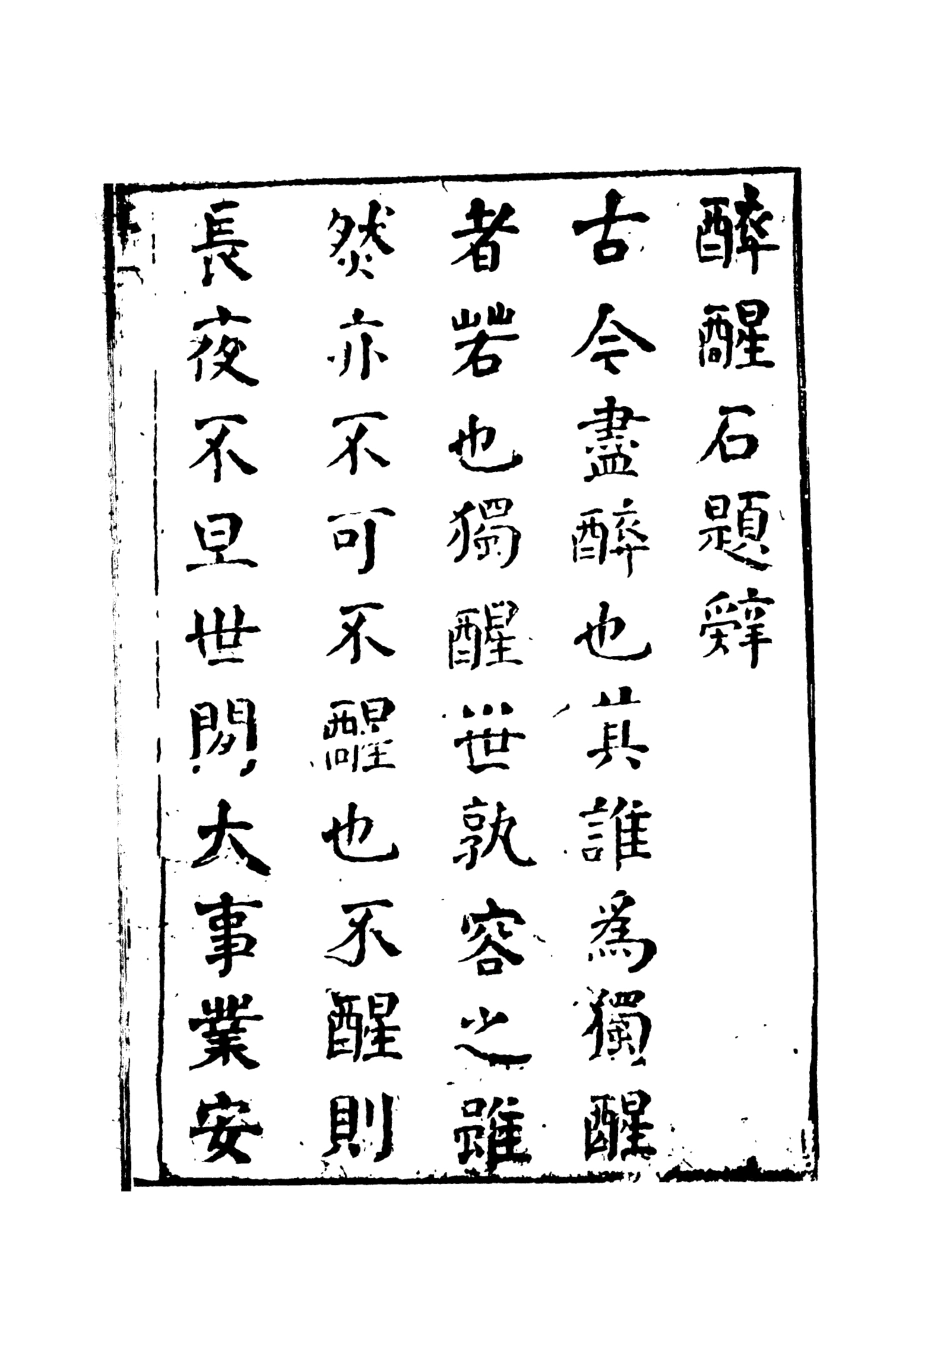 醉醒石題辭
古今盡醉也其誰爲獨醒
者若也獨醒世孰容之雖
然亦不可不醒也不醒則
長夜不旦世間大事業安